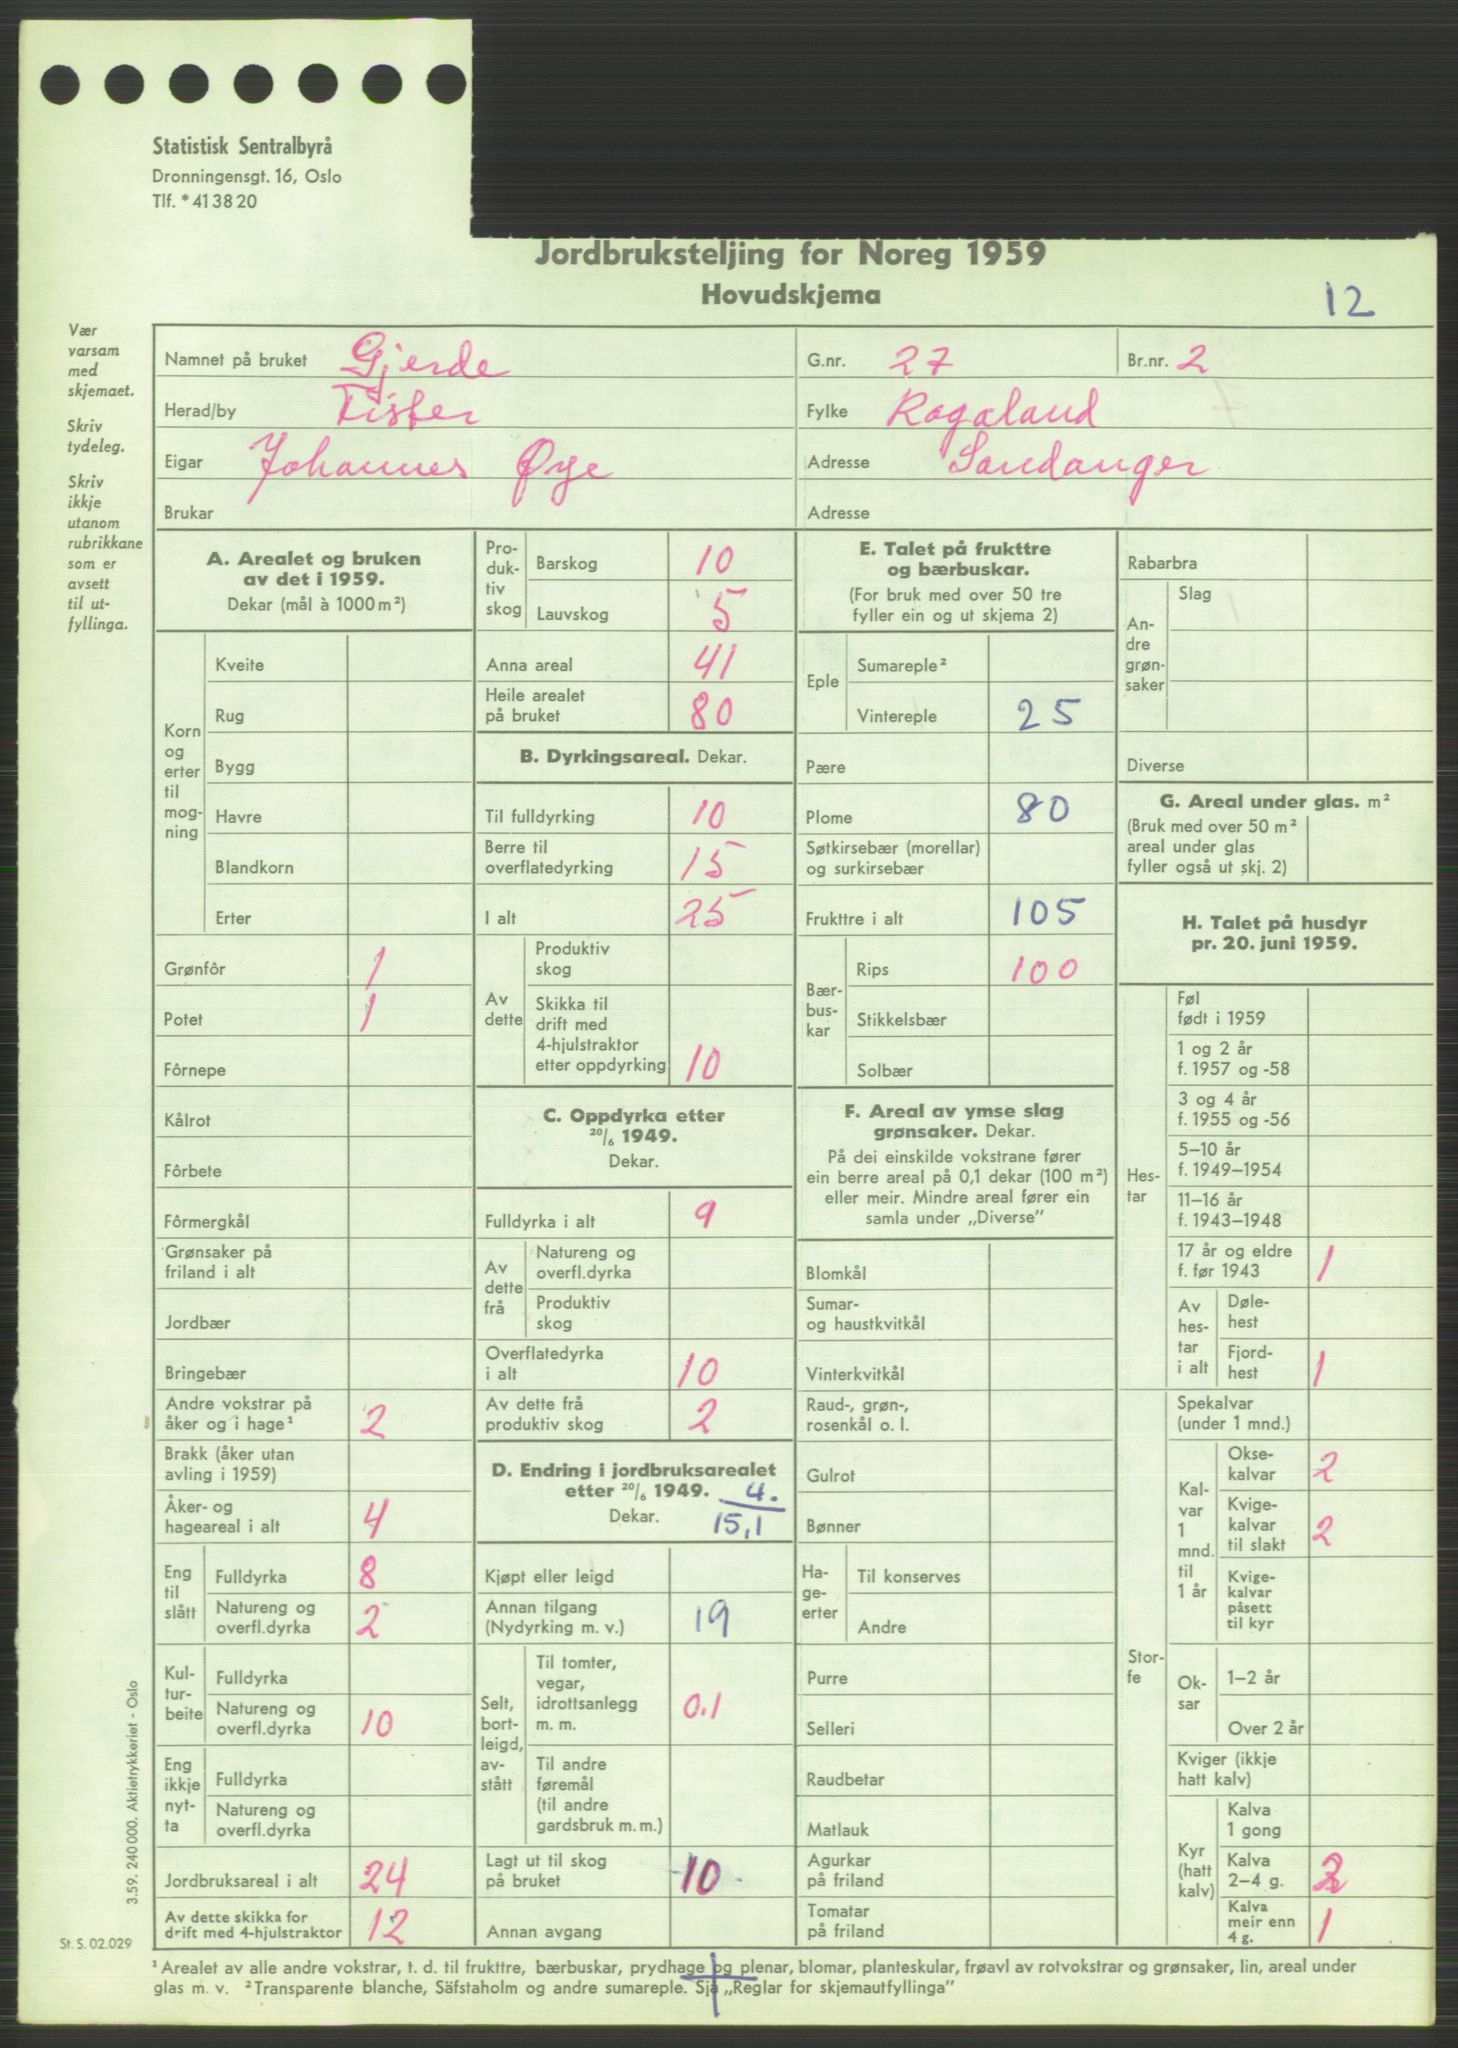 Statistisk Sentralbyrå
Dronningensgt. 16, Oslo
Tlf. * 41 38 20
Jordbruksteljing for Noreg 1959
Hovudskjema
12
Vær
varsam
med
skjemaet.
Skriv
tydeleg.
Skriv
ikkje
utanom
rubrikkane
som er
avsett
til ut-
fyllinga.
Namnet på bruket Gjerde
G.nr. 27
Br.nr. 2
Herad/by Fister
Fylke Rogaland
Eigar Johannes Øye
Adresse Sandanger
Brukar
Adresse
A. Arealet og bruken
av det i 1959.
Dekar (mål à 1000 m²)
Korn
og
erter
til
mog-
ning
Kveite
Rug
Bygg
Havre
Blandkorn
Erter
Grønfôr 1
Potet 1
Fôrnepe
Kålrot
Fôrbete
Fôrmergkål
Grønsaker på
friland i alt
Jordbær
Bringebær
Andre vokstrar på
åker og i hage¹ 2
Brakk (åker utan
avling i 1959)
Åker- og
hageareal i alt 4
Eng
til
slått
Fulldyrka 8
Natureng og
overfl.dyrka 2
Kul-
tur-
beite
Fulldyrka
Natureng og
overfl.dyrka 10
Eng
ikkje
nyt-
ta
Fulldyrka
Natureng og
overfl.dyrka
Jordbruksareal i alt 24
Av dette skikka for
drift med 4-hjulstraktor 12
Pro-
duk-
tiv
skog
Barskog 10
Lauvskog 5
Anna areal 41
Heile arealet
på bruket 80
B. Dyrkingsareal. Dekar.
Til fulldyrking 10
Berre til
overflatedyrking 15
I alt 25
Av
dette
Produktiv
skog
Skikka til
drift med
4-hjulstraktor
etter oppdyrking 10
C. Oppdyrka etter
20/6 1949.
Dekar.
Fulldyrka i alt 9
Av
dette
frå
Natureng og
overfl.dyrka
Produktiv
skog
Overflatedyrka
i alt 10
Av dette frå
produktiv skog 2
D. Endring i jordbruksarealet
etter 20/6 1949. 4.
Dekar. 15,1
Kjøpt eller leigd
Annan tilgang
(Nydyrking m. v.) 19
Selt,
bort-
leigd,
av-
stått
Til tomter,
vegar,
idrottsanlegg
m. m. 0.1
Til andre
føremål
(til andre
gardsbruk m. m.)
Lagt ut til skog
på bruket 10
Annan avgang
E. Talet på frukttre
og bærbuskar.
(For bruk med over 50 tre
fyller ein og ut skjema 2)
Eple
Sumareple²
Vintereple 25
Pære
Plome 80
Søtkirsebær (morellar)
og surkirsebær
Frukttre i alt 105
Bær-
bus-
kar
Rips 100
Stikkelsbær
Solbær
F. Areal av ymse slag
grønsaker. Dekar.
På dei einskilde vokstrane fører
ein berre areal på 0,1 dekar (100 m²)
eller meir. Mindre areal fører ein
samla under „Diverse”
Blomkål
Sumar-
og haustkvitkål
Vinterkvitkål
Raud-, grøn-,
rosenkål o. l.
Gulrot
Bønner
Ha-
ge-
erter
Til konserves
Andre
Purre
Selleri
Raudbetar
Matlauk
Agurkar
på friland
Tomatar
på friland
Rabarbra
An-
dre
grøn-
saker
Slag
Diverse
G. Areal under glas. m²
(Bruk med over 50 m²
areal under glas
fyller også ut skj. 2)
H. Talet på husdyr
pr. 20. juni 1959.
Hes-
tar
Føl
født i 1959
1 og 2 år
f. 1957 og -58
3 og 4 år
f. 1955 og -56
5–10 år
f. 1949–1954
11–16 år
f. 1943–1948
17 år og eldre
f. før 1943 1
Av
hes-
tar
i alt
Døle-
hest
Fjord-
hest 1
Stor-
fe
Spekalvar
(under 1 mnd.)
Kal-
var
1
mnd.
til
1 år
Okse-
kalvar 2
Kvige-
kalvar
til slakt 2
Kvige-
kalvar
påsett
til kyr
Ok-
sar
1–2 år
Over 2 år
Kviger (ikkje
hatt kalv)
Kyr
(hatt
kalv)
Kalva
1 gong
Kalva
2–4 g.
Kalva
meir enn
4 g. 1
3.59. 240 000. Aktietrykkeriet - Oslo
St. S. 02.029
¹ Arealet av alle andre vokstrar, t. d. til frukttre, bærbuskar, prydhage og plenar, blomar, planteskular, frøavl av rotvokstrar og grønsaker, lin, areal under
glas m. v. ² Transparente blanche, Säfstaholm og andre sumareple. Sjå „Reglar for skjemautfyllinga”